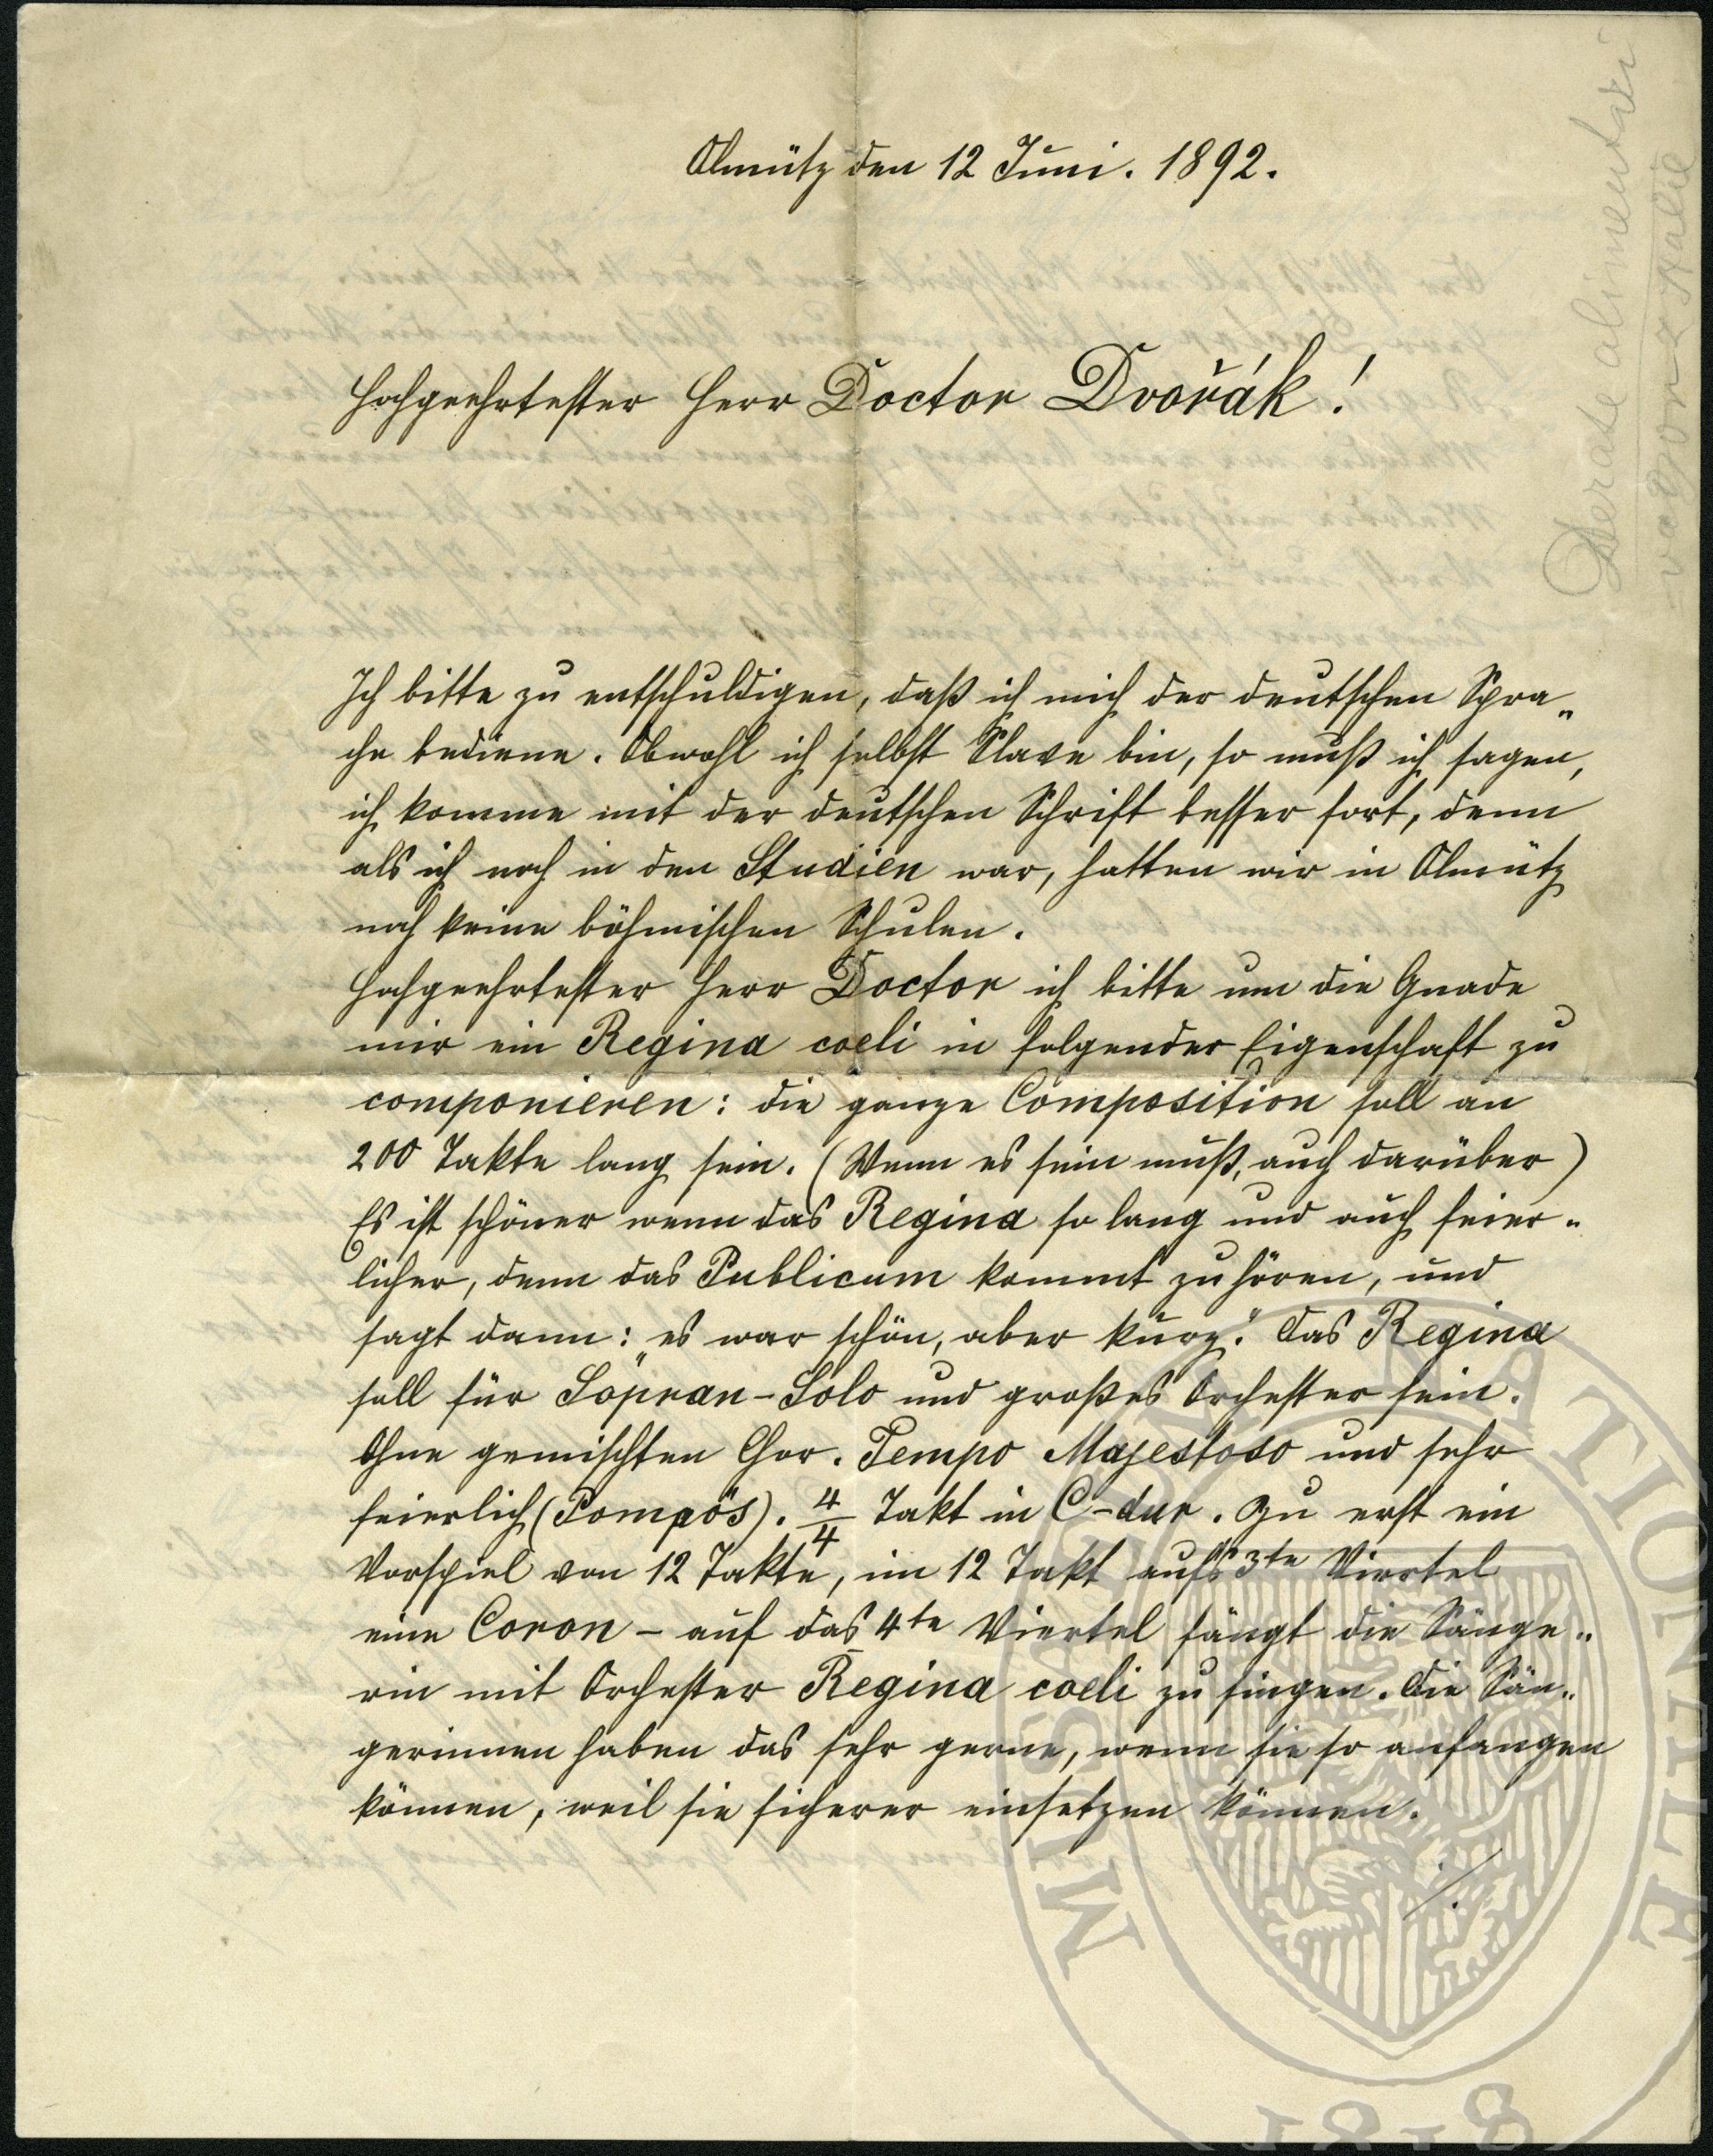 Olmütz den 12 Juni. 1892.
Hochgeehrtester Herr Doctor Dvořák!
Ich bitte zu entschuldigen, daß ich mich der deutschen Spra„
che bediene. Obwohl ich selbst Slave bin, so muß ich sagen,
ich komme mit der deutschen Schrift besser fort, denn
als ich noch in den Studien war, hatten wir in Olmütz
noch keine böhmischen Schulen.
Hochgeehrtester Herr Doctor ich bitte um die Gnade
mir ein Regina coeli in folgender Eigenschaft zu
componieren: die ganze Composition soll an
200 Takte lang sein. (Wenn es sein muß, auch darüber)
Es ist schöner wenn das Regina so lang und auch feier„
licher, denn das Publicum kommt zu hören, und
sagt dann: „es war schön, aber kurz." Das Regina
soll für Sopran-Solo und großes Orchester sein.
Ohne gemischten Chor. Tempo Majestoso und sehr
feierlich (Pompös). 4/4 Takt in C-dur. Zu erst ein
Vorspiel von 12 Takte, im 12 Takt aufs 3te Viertel
eine Coron – auf das 4te Viertel fängt die Sänge„
rin mit Orchester Regina coeli zu singen. Die Sän„
gerinnen haben das sehr gerne, wenn sie so anfangen
können, weil sie sicherer einsetzen können.
./.
MUSEUM NATIONALE
1818